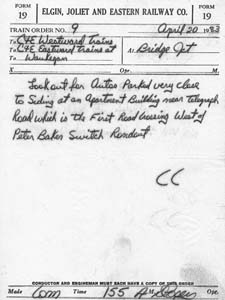 FORM
19
ELGIN, JOLIET AND EASTERN RAILWAY CO.
FORM
19
TRAIN ORDER NO. 9 April 20 1983
To C&E Westward Trains At Bridge Jct
To C&E Eastward Trains at
To Waukegan
X Opr. M.
Look out for Autos Parked very close
to Siding at an Apartment Building near Telegraph
Road which is the First Road Crossing West of
Peter Baker Switch Rondout
CC
CONDUCTOR AND ENGINEMAN MUST EACH HAVE A COPY OF THIS ORDER
Made Com Time 155 A M Opr.